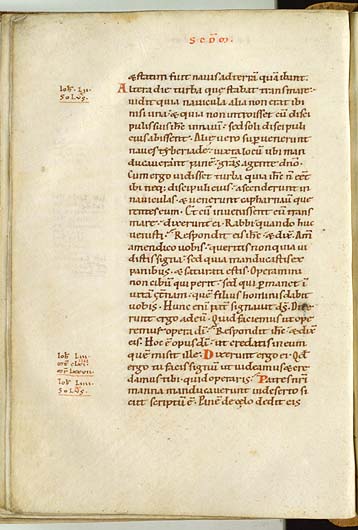 SCD̄M̄.
& statim fuit nauis ad terrā quā ibant.
Ioħ. Lii.
Solus.
Altera die turba que stabat trans mare.
uidit quia nauicula alia non erat ibi
nisi una. & quia non introisset cū disci
pulis suis ihc in nauī. sed soli discipuli
eius abissent. Alię uero superuenerunt
naues tyberiade. iuxta locū ubi man
ducauerant panē. gr̄as agente dn̄o.
Cum ergo uidisset turba quia ihc n̄ eet
ibi neq; discipuli eius. ascenderunt in
nauiculas. & uenerunt capharnaū que
rentes eum. Et cū inuenissent eū trans
mare. dixerunt ei. Rabbi. quando huc
uenisti. Respondit eis ihc. & dix̄. Am̄
amen dico uobis. queritis me non quia ui
distis signa. sed quia manducastis ex
panibus. & saturati estis. Operamini
non cibū qui perit. sed qui permanet in
uitā et̄nam. quē filius hominis dabit
uobis. Hunc eni pat̄ signauit ds̄. Dixe
runt ergo ad eū. Quid faciemus ut ope
remur opera dī. Respondit ihc. & dix̄
eis. Hoc ē opus dī. ut credatis in eum
quē misit ille. Dixerunt ergo ei. Qd̄
Ioħ. Liii.
ergo tu facis signū ut uideamus & cre
Ioħ. Liiii.
Solus.
damus tibi. quid operaris. Patres nr̄i
manna manducauerunt in deserto si
cut scriptū ē. Panē de cęlo dedit eis